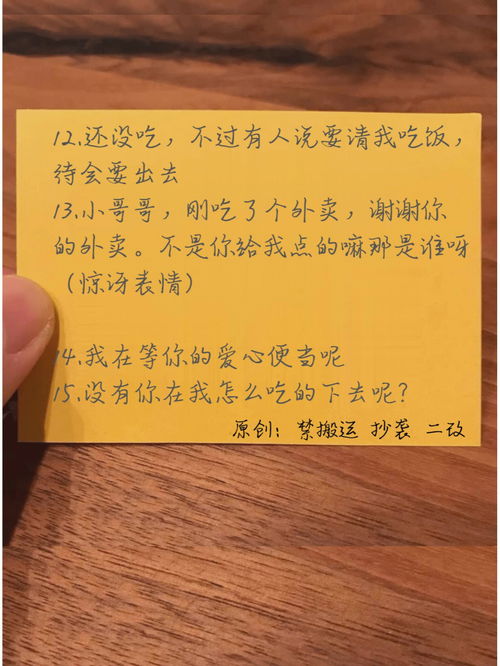 12.还没吃，不过有人说要请我吃饭，
待会要出去
13.小哥哥，刚吃了个外卖，谢谢你
的外卖。不是你给我点的嘛那是谁呀
（惊讶表情）
14.我在等你的爱心便当呢
15.没有你在我怎么吃的下去呢？
原创：禁搬运 抄袭 二改